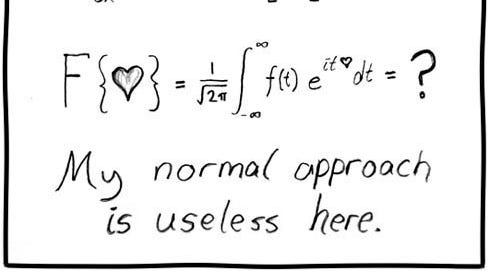 F{♥} = 1/√2π ∫_{-∞}^{∞} f(t) e^{it♥} dt = ?
My normal approach
is useless here.